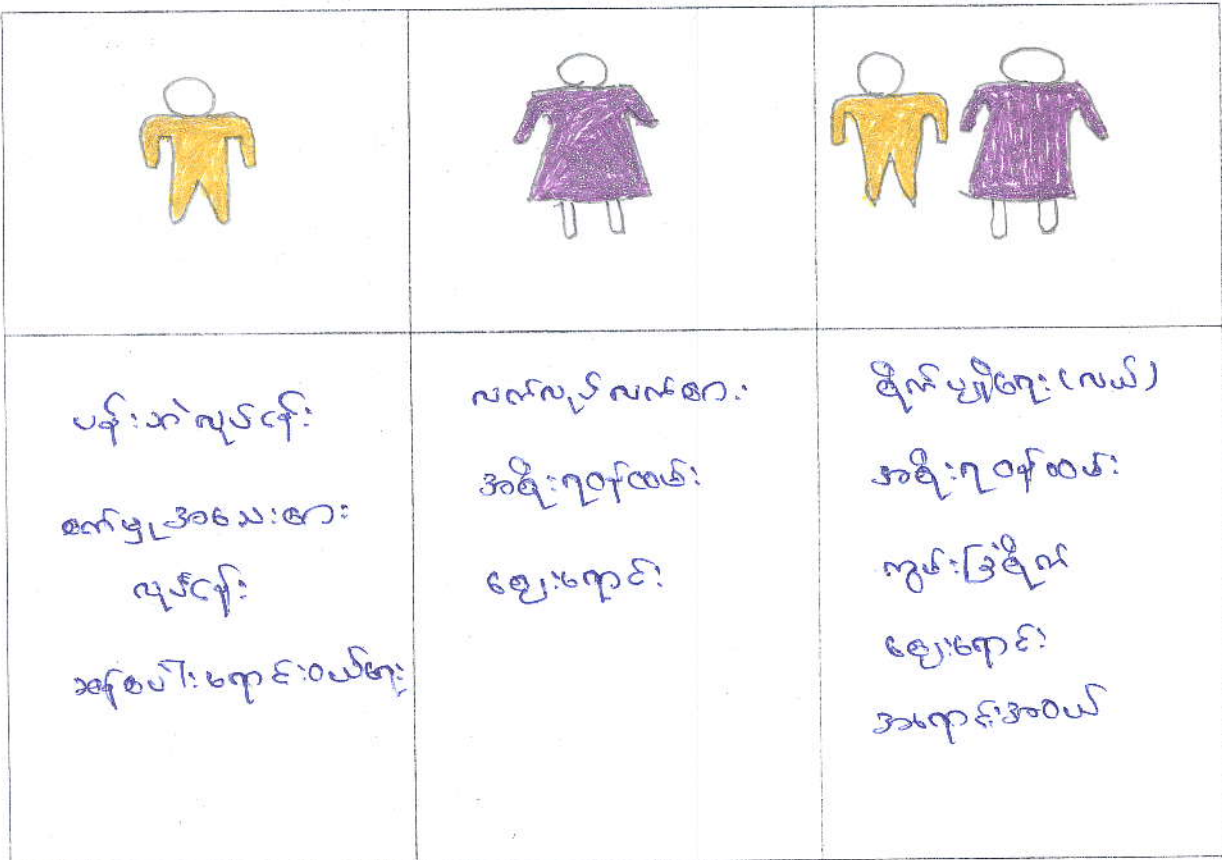 ပန်းဘဲလုပ်ငန်း
စက်မှုအသေးစား
လုပ်ငန်း
ဆန်စပါးရောင်းဝယ်ရေး
လက်လုပ်လက်စား
အစိုးရဝန်ထမ်း
ဈေးရောင်း
စိုက်ပျိုးရေး (လယ်)
အစိုးရဝန်ထမ်း
ကွမ်းခြံစိုက်
ဈေးရောင်း
အရောင်းအဝယ်